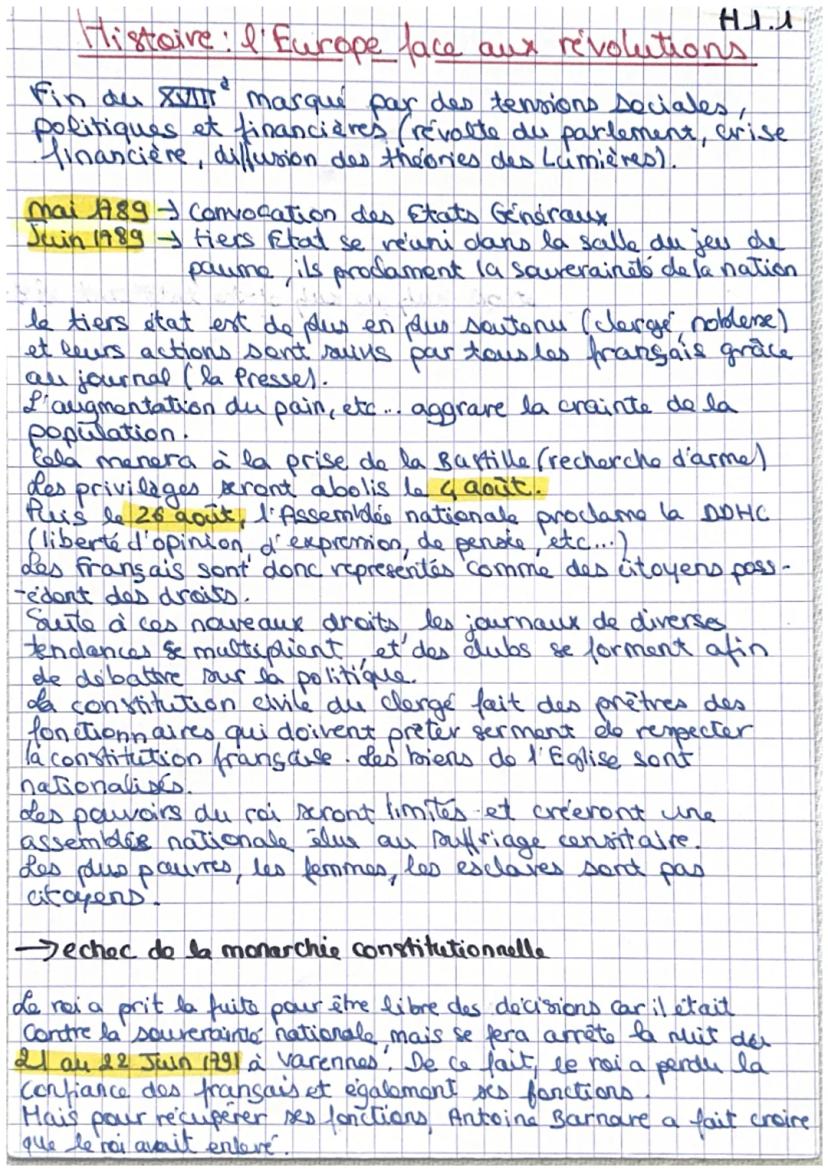 H1.1
Histoire : l'Europe face aux révolutions
Fin du XVIIIe marqué par des tensions sociales,
politiques et financières (révolte du parlement, crise
financière, diffusion des théories des Lumières).
mai 1789 → Convocation des Etats Généraux
Juin 1989 → tiers Etat se réuni dans la salle du jeu de
paume, ils proclament la souveraineté de la nation
le tiers état est de plus en plus soutenu (clergé, noblesse)
et leurs actions sont suivis par tous les français grâce
au journal (la Presse).
L'augmentation du pain, etc... aggrave la crainte de la
population.
Cela menera à la prise de la Bastille (recherche d'arme)
Les privilèges seront abolis le 4 août.
Puis le 26 août, l'Assemblée nationale proclame la DDHC
(liberté d'opinion, d'expression, de pensée, etc...)
Les français sont donc représentés comme des citoyens poss-
-édant des droits.
Suite à ces nouveaux droits les journaux de diverses
tendances se multiplient et des clubs se forment afin
de débattre sur la politique.
La constitution civile du clergé fait des prêtres des
fonctionnaires qui doivent prêter serment de respecter
la constitution française. Les biens de l'Eglise sont
nationalisés.
Les pouvoirs du roi seront limités et créeront une
assemblée nationale élus au suffriage censitaire.
Les plus pauvres, les femmes, les esclaves sont pas
citoyens.
→ echec de la monarchie constitutionnelle
Le roi a prit la fuite pour être libre des décisions car il était
contre la souverainté nationale, mais se fera arrêté la nuit du
21 au 22 Juin 1791 à Varennes. De ce fait, le roi a perdu la
confiance des français et également ses fonctions.
Mais pour récupérer ses fonctions, Antoine Barnave a fait croire
que le roi avait enlevé.